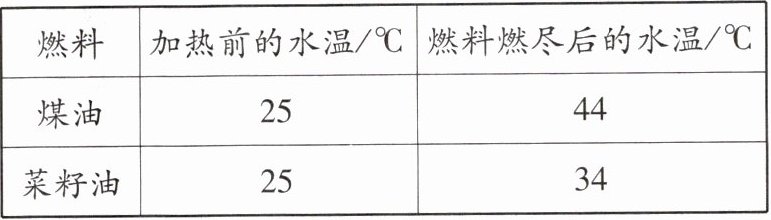 燃料 加热前的水温/℃ 燃料燃尽后的水温/℃
煤油 25 44
菜籽油 25 34